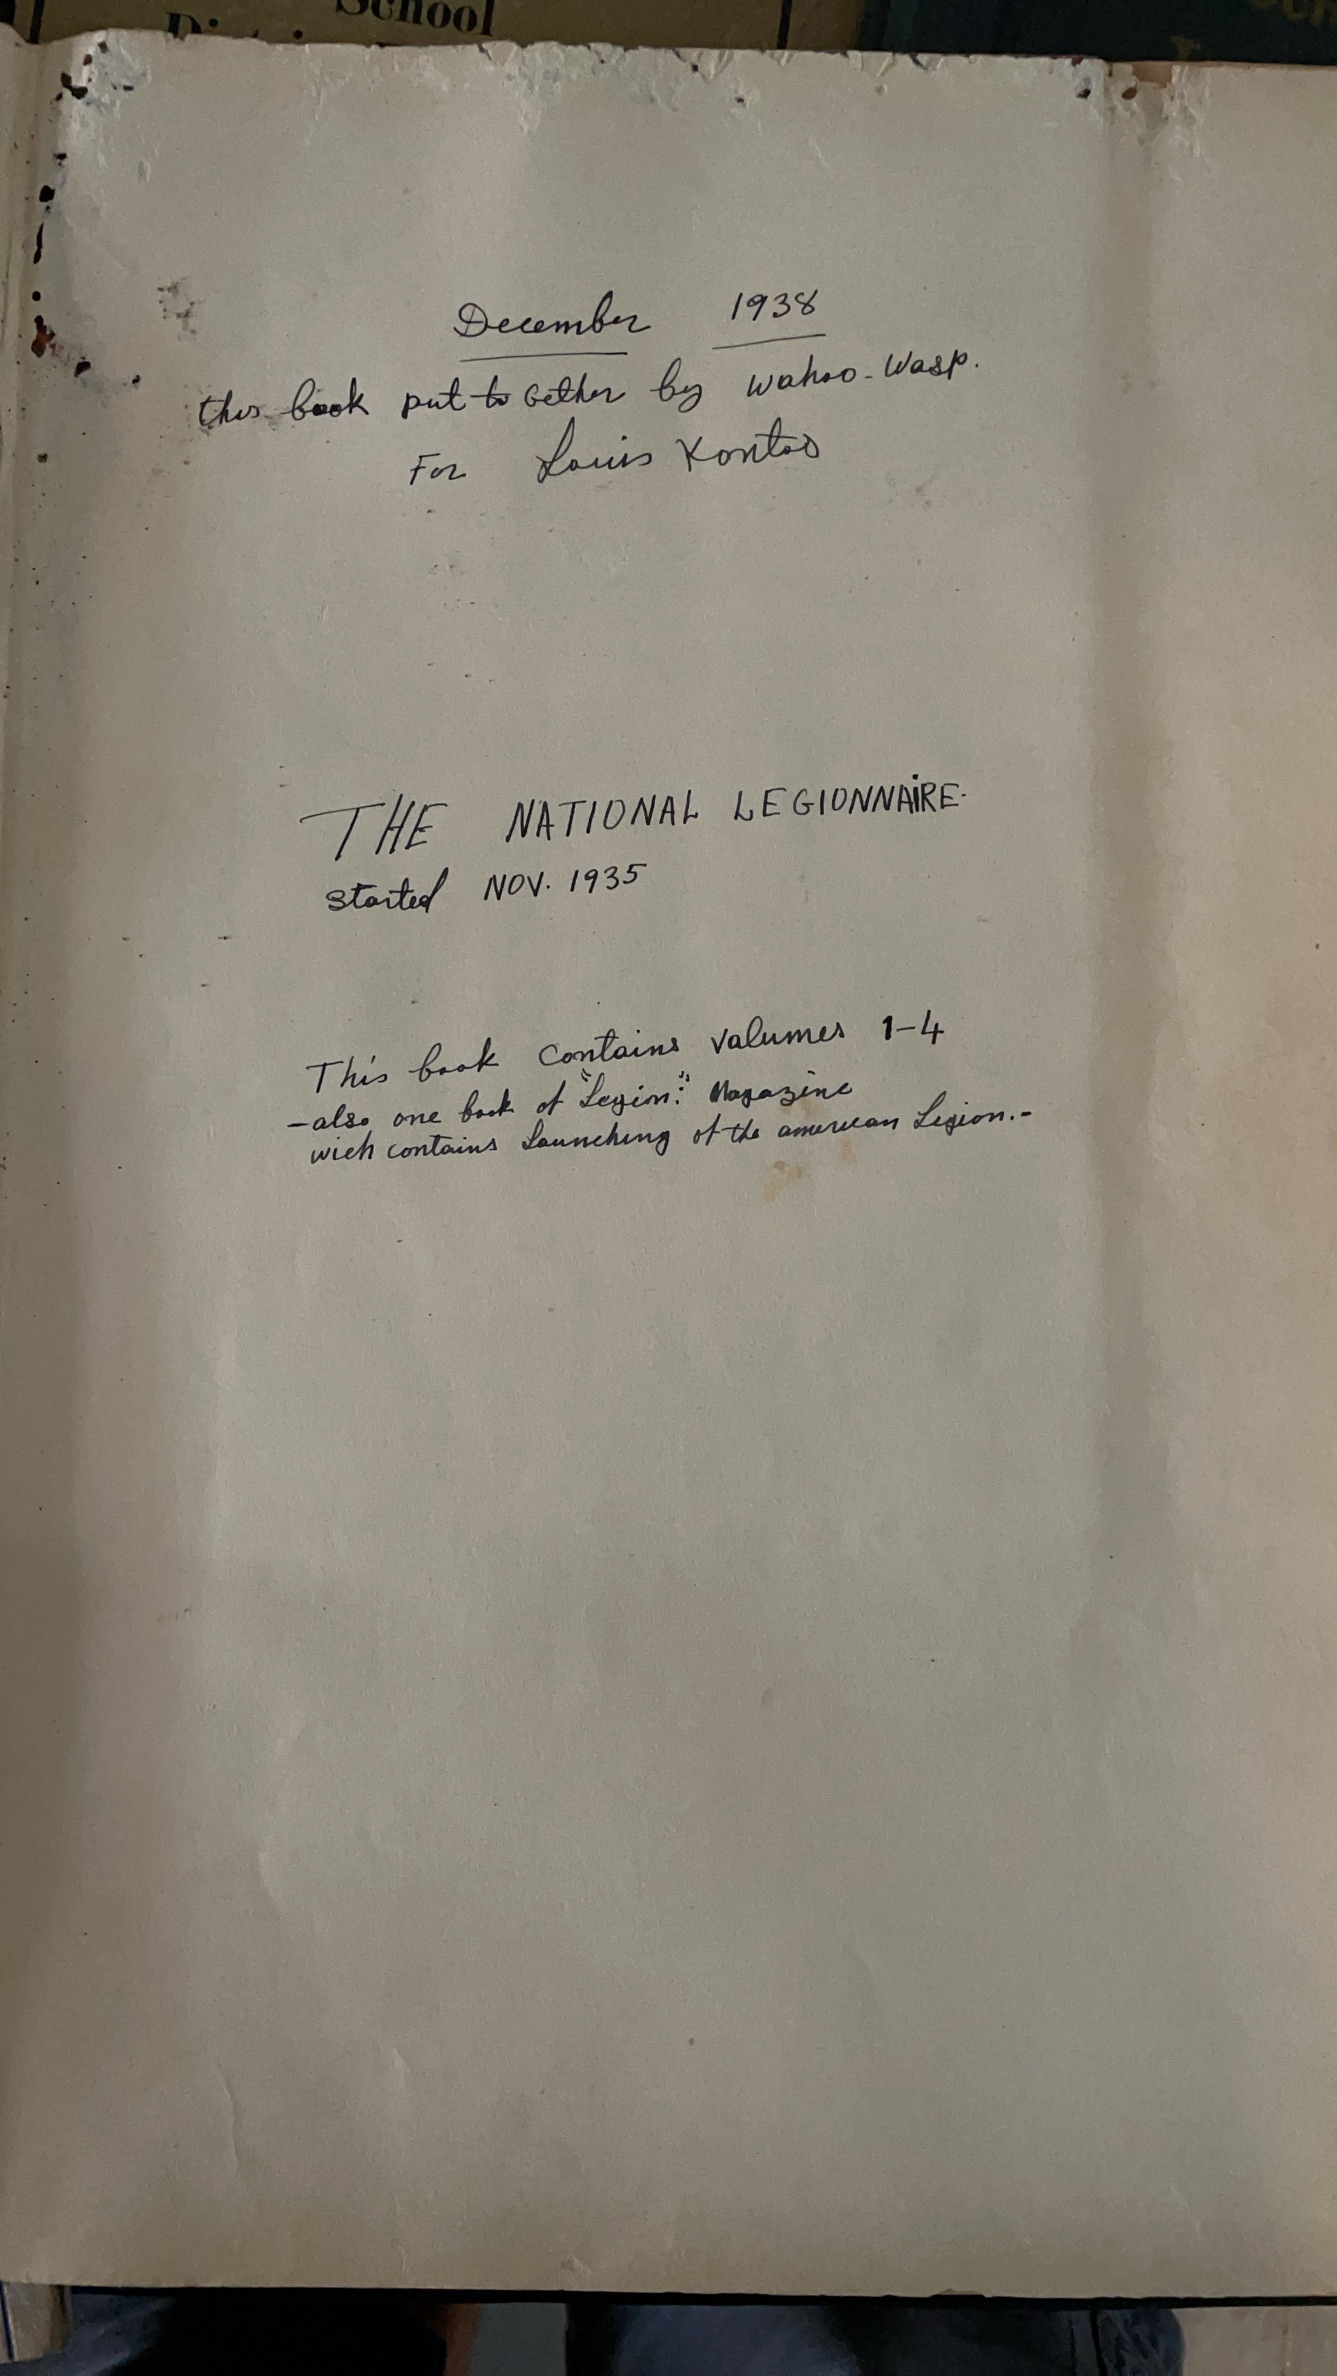 School
December 1938
this book put to Gether by wahoo-Wasp.
For Louis Kontos
THE NATIONAL LEGIONNAiRE.
started NOV. 1935
This book contains valumes 1-4
-also one book of "Legion." Magazine
wich contains Launching of the american Legion.-